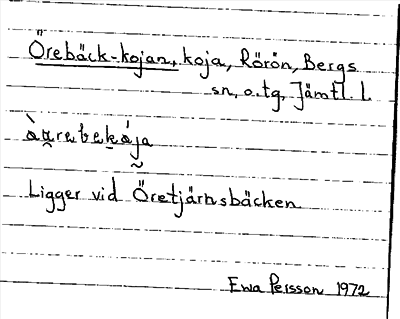 Örebäck-kojan, koja, Rörön, Bergs
sn, o. tg, Jämtl. l.
Ligger vid Öretjärnsbäcken
Ewa Persson 1972